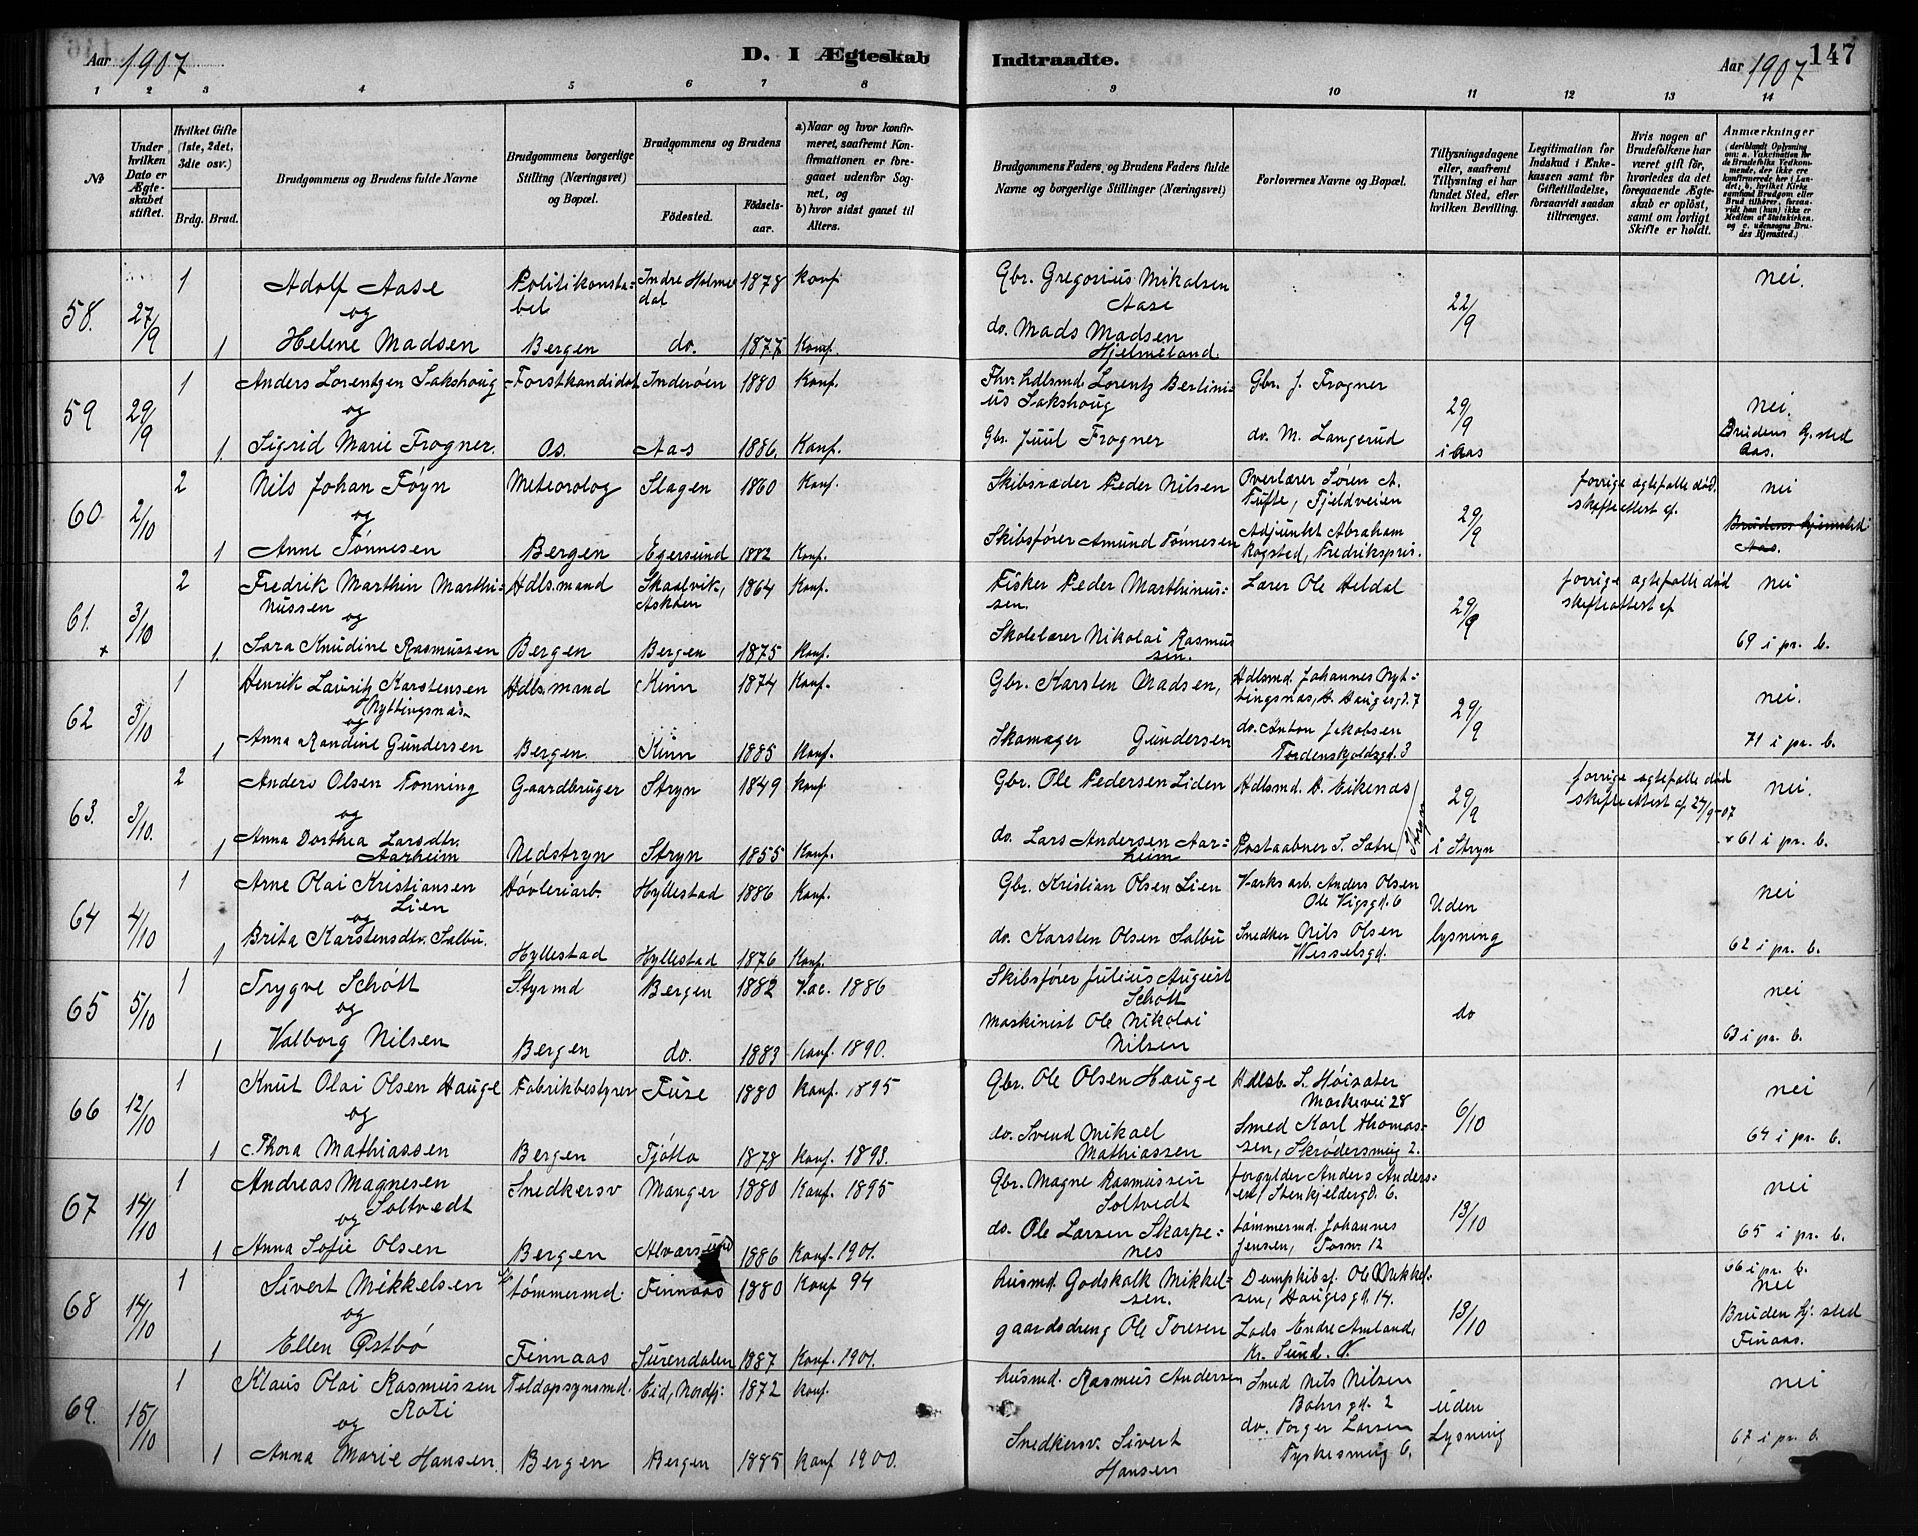 Aar 1907
D. I Ægteskab Indtraadte.
Aar 1907
147
1 2 3 4 5 6 7 8 9 10 11 12 13 14
No
Under hvilken Dato er Ægteskabet stiftet.
Hvilket Gifte (1ste, 2det, 3die osv.)
Brdg. Brud.
Brudgommens og Brudens fulde Navne
Brudgommens borgerlige Stilling (Næringsvei) og Bopæl.
Brudgommens og Brudens
Fødested.
Fødselsaar.
a) Naar og hvor konfirmeret, saafremt Konfirmationen er foregaaet udenfor Sognet, og
b) hvor sidst gaaet til Alters.
Brudgommens Faders og Brudens Faders fulde Navne og borgerlige Stillinger (Næringsvei)
Forlovernes Navne og Bopæl.
Tillysningsdagene eller, saafremt Tillysning ei har fundet Sted, efter hvilken Bevilling.
Legitimation for Indskud i Enkekassen samt for Giftetilladelse, forsaavidt saadan tiltrænges.
Hvis nogen af Brudefolkene har været gift før, hvorledes da det foregaaende Ægteskab er opløst, samt om lovligt Skifte er holdt.
Anmærkninger (deriblandt Oplysning om: a. Vakcination for de Brudefolks Vedkommende, der ikke ere konfirmerede her i Landet; b. hvilket Kirkesamfund Brudgom eller Brud tilhører, forsaavidt han (hun) ikke er Medlem af Statskirken, og c. udensogns Brudes Hjemsted.)
58. 27/9 1 Adolf Aase Politikonstabel Indre Holmedal 1878 konf Gbr. Gregorius Mikalsen Aase 22/9 nei.
og
1 Helene Madsen Bergen do. 1877 Konf. do. Mads Madsen Hjelmeland.
59 29/9 1 Anders Lorentzen Sakshoug Forstkandidat Inderøen 1880 Konf. Fhv. hdlsmd. Lorentz Berlinius Sakshoug Gbr. J. Frogner 29/9 i Aas nei.
og
1. Sigrid Marie Frogner. Os. Aas 1886. Konf. Gbr. Juul Frogner do. M. Langerud Brudens hj. sted Aas.
60 2/10 2 Nils Johan Føyn Meteorolog Slagen 1860 Konf. Skibsreder Peder Nilsen Overlærer Søren A. Tufte, Fjeldveien 29/9 forrige ægtefælle død. skifteattest ef. nei
og
1 Anne Tønnesen Bergen Egersund 1882 Konf. Skibsfører Amund Tønnesen Adjunkt Abraham Rogsted, Fredrikspris. Brudens hjemsted Aas.
61 × 3/10 2 Fredrik Marthin Marthinussen Hdlsmand Skaalvik, Askøen 1864 Konf. Fisker Peder Marthinussen. Lærer Ole Heldal 29/9 forrige ægtefælle død skifteattest ef nei
og
1. Sara Knudine Rasmussen Bergen Bergen 1875 Konf. Skolelærer Nikolai Rasmussen. 69 i pr. b.
62 3/10 1 Henrik Lauritz Karstensen Nyttingsnæs Hdlsmand Kinn 1874 Konf. Gbr. Karsten Madsen, Hdlsmd. Johannes Nyttingsnæs, H. Haugesgd. 7 29/9 nei.
og
1 Anna Randine Gundersen Bergen. Kinn 1885 Konf. Skomager Gundersen do. Anton Jakobsen Tordenskjoldsgd. 3 71 i pr. b.
63. 3/10. 2 Anders Olsen Tonning Gaardbruger Stryn 1849 Konf Gbr. Ole Pedersen Liden Hdlsmd. A. Eikenæs 29/9 i Stryn forrige ægtefælle død skifteattest ef 27/9-07 nei.
og
1 Anna Dorthea Larsdtr. Aarheim Nedstryn Stryn 1855 Konf. do. Lars Andersen Aarheim Postaabner S. Sætre / Stryn × 61 i pr. b.
64 4/10 1 Arne Olai Kristiansen Lien Høvleriarb. Hyllestad 1886 Konf. Gbr. Kristian Olsen Lien Værks arb. Anders Olsen Ole Vigsgd. 6 Uden lysning nei
og
1 Brita Karstensdtr. Salbu. Hyllestad Hyllestad 1876 Konf. do. Karsten Olsen Salbu Snedker Nils Olsen Wesselsgd. 62 i pr. b.
65 5/10 1 Trygve Schøtt Styrmd Bergen 1882 Vac. 1886 Skibsfører Julius August Schøtt do nei
og
1 Valborg Nilsen Bergen do. 1883 konf. 1890. Maskinist Ole Nikolai Nilsen 63 i pr. b.
66 12/10 1 Knut Olai Olsen Hauge Fabrikbestyrer Fuse 1880 konf. 1895 Gbr. Ole Olsen Hauge Hdlsb. S. Høisæter Markevei 28 6/10 nei
og
1 Thora Mathiassen Bergen Tjøtta 1878 Konf. 1893. do. Svend Mikael Mathiassen Smed Karl Thomassen, Skrødersmug 2. 64 i pr. b.
67 14/10 1 Andreas Magnesen Soltvedt Snedkersv Manger 1880 Konf. 1895 Gbr. Magne Rasmussen Soltvedt forgylder Anders Andersen, Stenkjeldergd. 6. 13/10 nei
og
1 Anna Sofie Olsen Bergen Alvarsund 1886 Konf. 1901. do. Ole Larsen Skarpenes tømmermd. Johannes Jensen, Torv. 12 65 i pr. b.
68 14/10 1 Sivert Mikkelsen tømmermd. Finnaas 1880 Konf 94 husmd. Godskalk Mikkelsen. Dampskibsf. Ole Mikkelsen, Haugesgd. 14. 13/10 66 i pr. b. nei
og
1 Ellen Østbø Finnaas Surendalen 1887 Konf. 1901. gaardsdreng Ole Toresen Lods Endre Amland, Kr. Sund. N. Bruden hj. sted Finaas.
69. 15/10 1 Klaus Olai Rasmussen Roti Toldopsynsmd. Eid, Nordfj: 1872 konf. husmd. Rasmus Andersen Smed Nils Nilsen Bøhrsgd. 2 uden Lysning nei
og
1 Anna Marie Hansen. Bergen Bergen 1885 konf 1900. Snedkersv. Sivert Hansen do. Torger Larsen Tyskesmug 6. 67 i pr. b